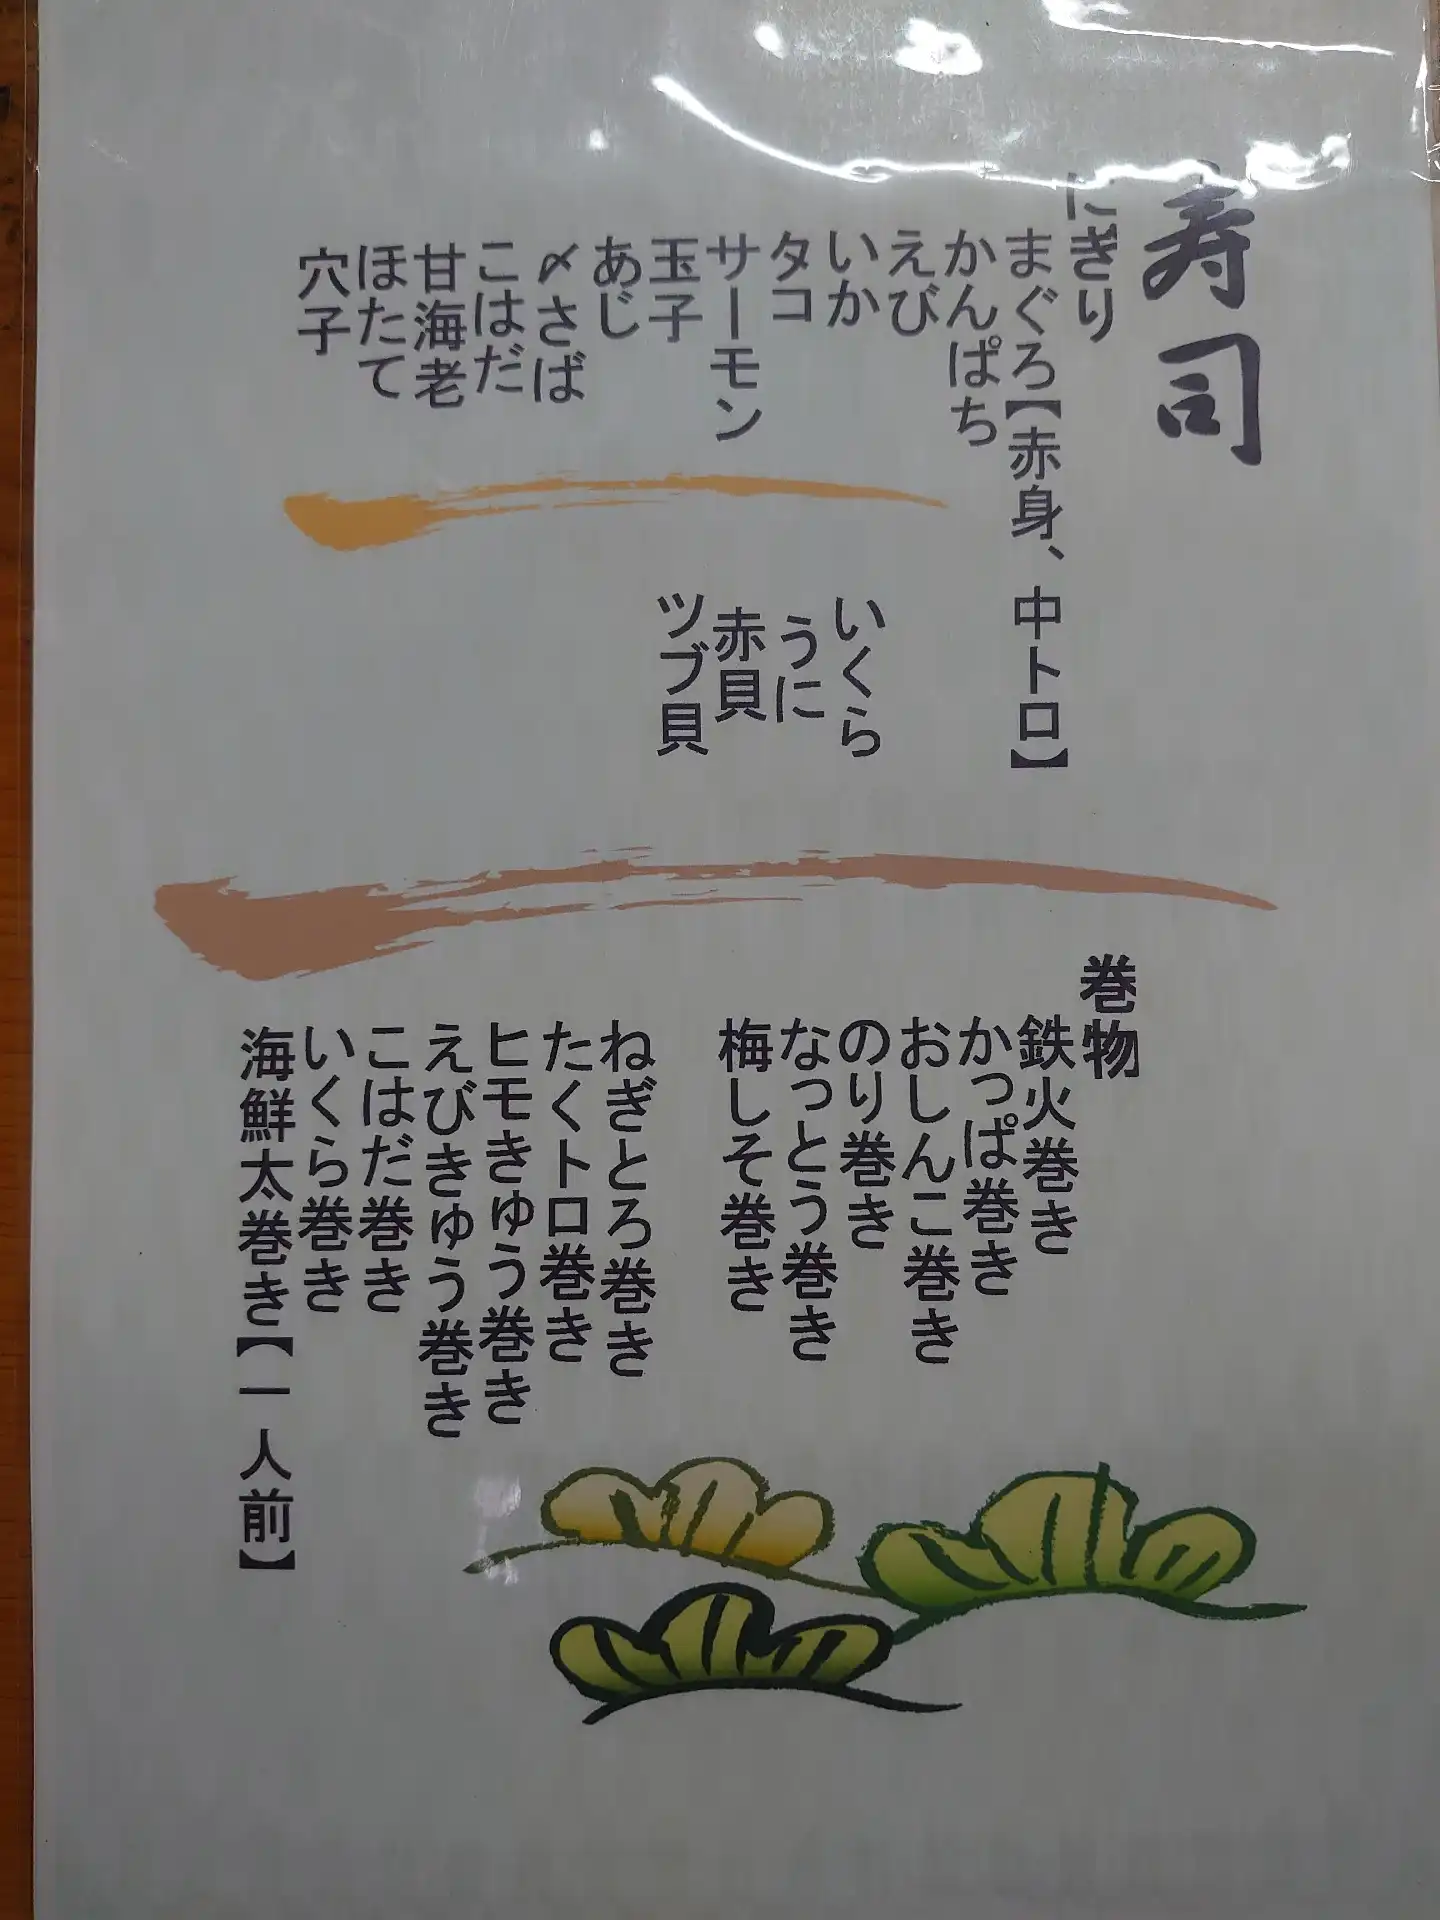 寿司
にぎり
まぐろ【赤身、中トロ】
かんぱち
えび
いか
タコ
サーモン
玉子
あじ
〆さば
こはだ
甘海老
ほたて
穴子
いくら
うに
赤貝
ツブ貝
巻物
鉄火巻き
かっぱ巻き
おしんこ巻き
のり巻き
なっとう巻き
梅しそ巻き
ねぎとろ巻き
たくトロ巻き
ヒモきゅう巻き
えびきゅう巻き
こはだ巻き
いくら巻き
海鮮太巻き【一人前】